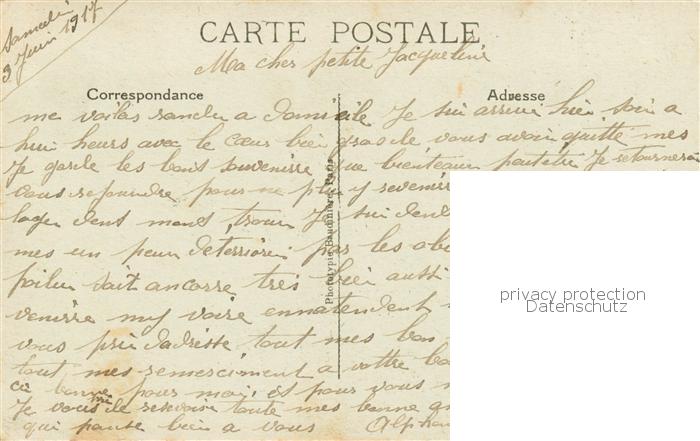 Samedi
3 Juin 1917
CARTE POSTALE
Ma cher petite Jacqueline
Correspondance
Adresse
me voilas randu a Domicile Je sui arrivé hier soir a
huit heurs avec le cœur bien gros de vous avoir quitté mes
Je garde les bons souvenirre que bientau peutetre Je retournerai
vous rejoindre pour ne plu y revenirr
loger dent mond trou Je sui dend
mes un peux deterriorer par les obu
poilu sait ancorre tres bien aussi
venirre my voire ennatendent
vous prie dadresse tout mes bon
tout mes remerciment a vottre
ci bonne pour moi, et pour vous
Je vous le resevoire toute mes bonne
qui panse bien a vous Alphon
Phototypie Baudinière, Paris
privacy protection
Datenschutz